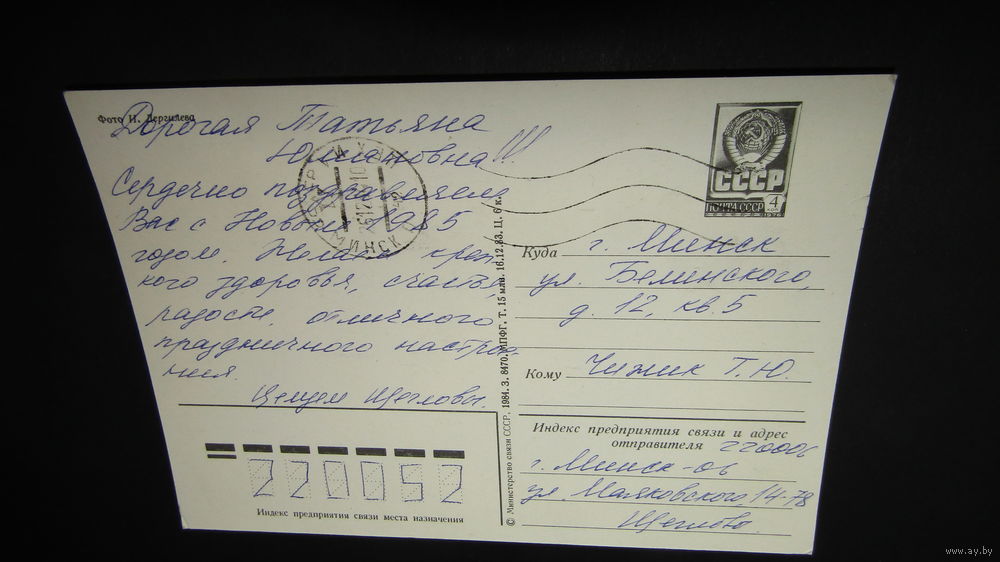 Фото И. Дергилева
Дорогая Татьяна
Юлиановна!!!
Сердечно поздравляем
Вас с Новым 1985
годом. Желаем креп
кого здоровья, счастья,
радости, отличного
праздничного настрое
ния.
Целуем Щегловы.
МИНСК
СССР
ПОЧТА СССР
4
1976
Куда г. Минск
ул. Белинского,
д. 12, кв. 5
Кому Чижик Т. Ю.
Индекс предприятия связи и адрес
отправителя 220006
г. Минск-06
ул. Маяковского, 14-78
Щеглова
© Министерство связи СССР, 1984. З. 8470. МПФГ. Т. 15 млн. 16.12.83. Ц. 6 к.
220052
Индекс предприятия связи места назначения
www.ay.by